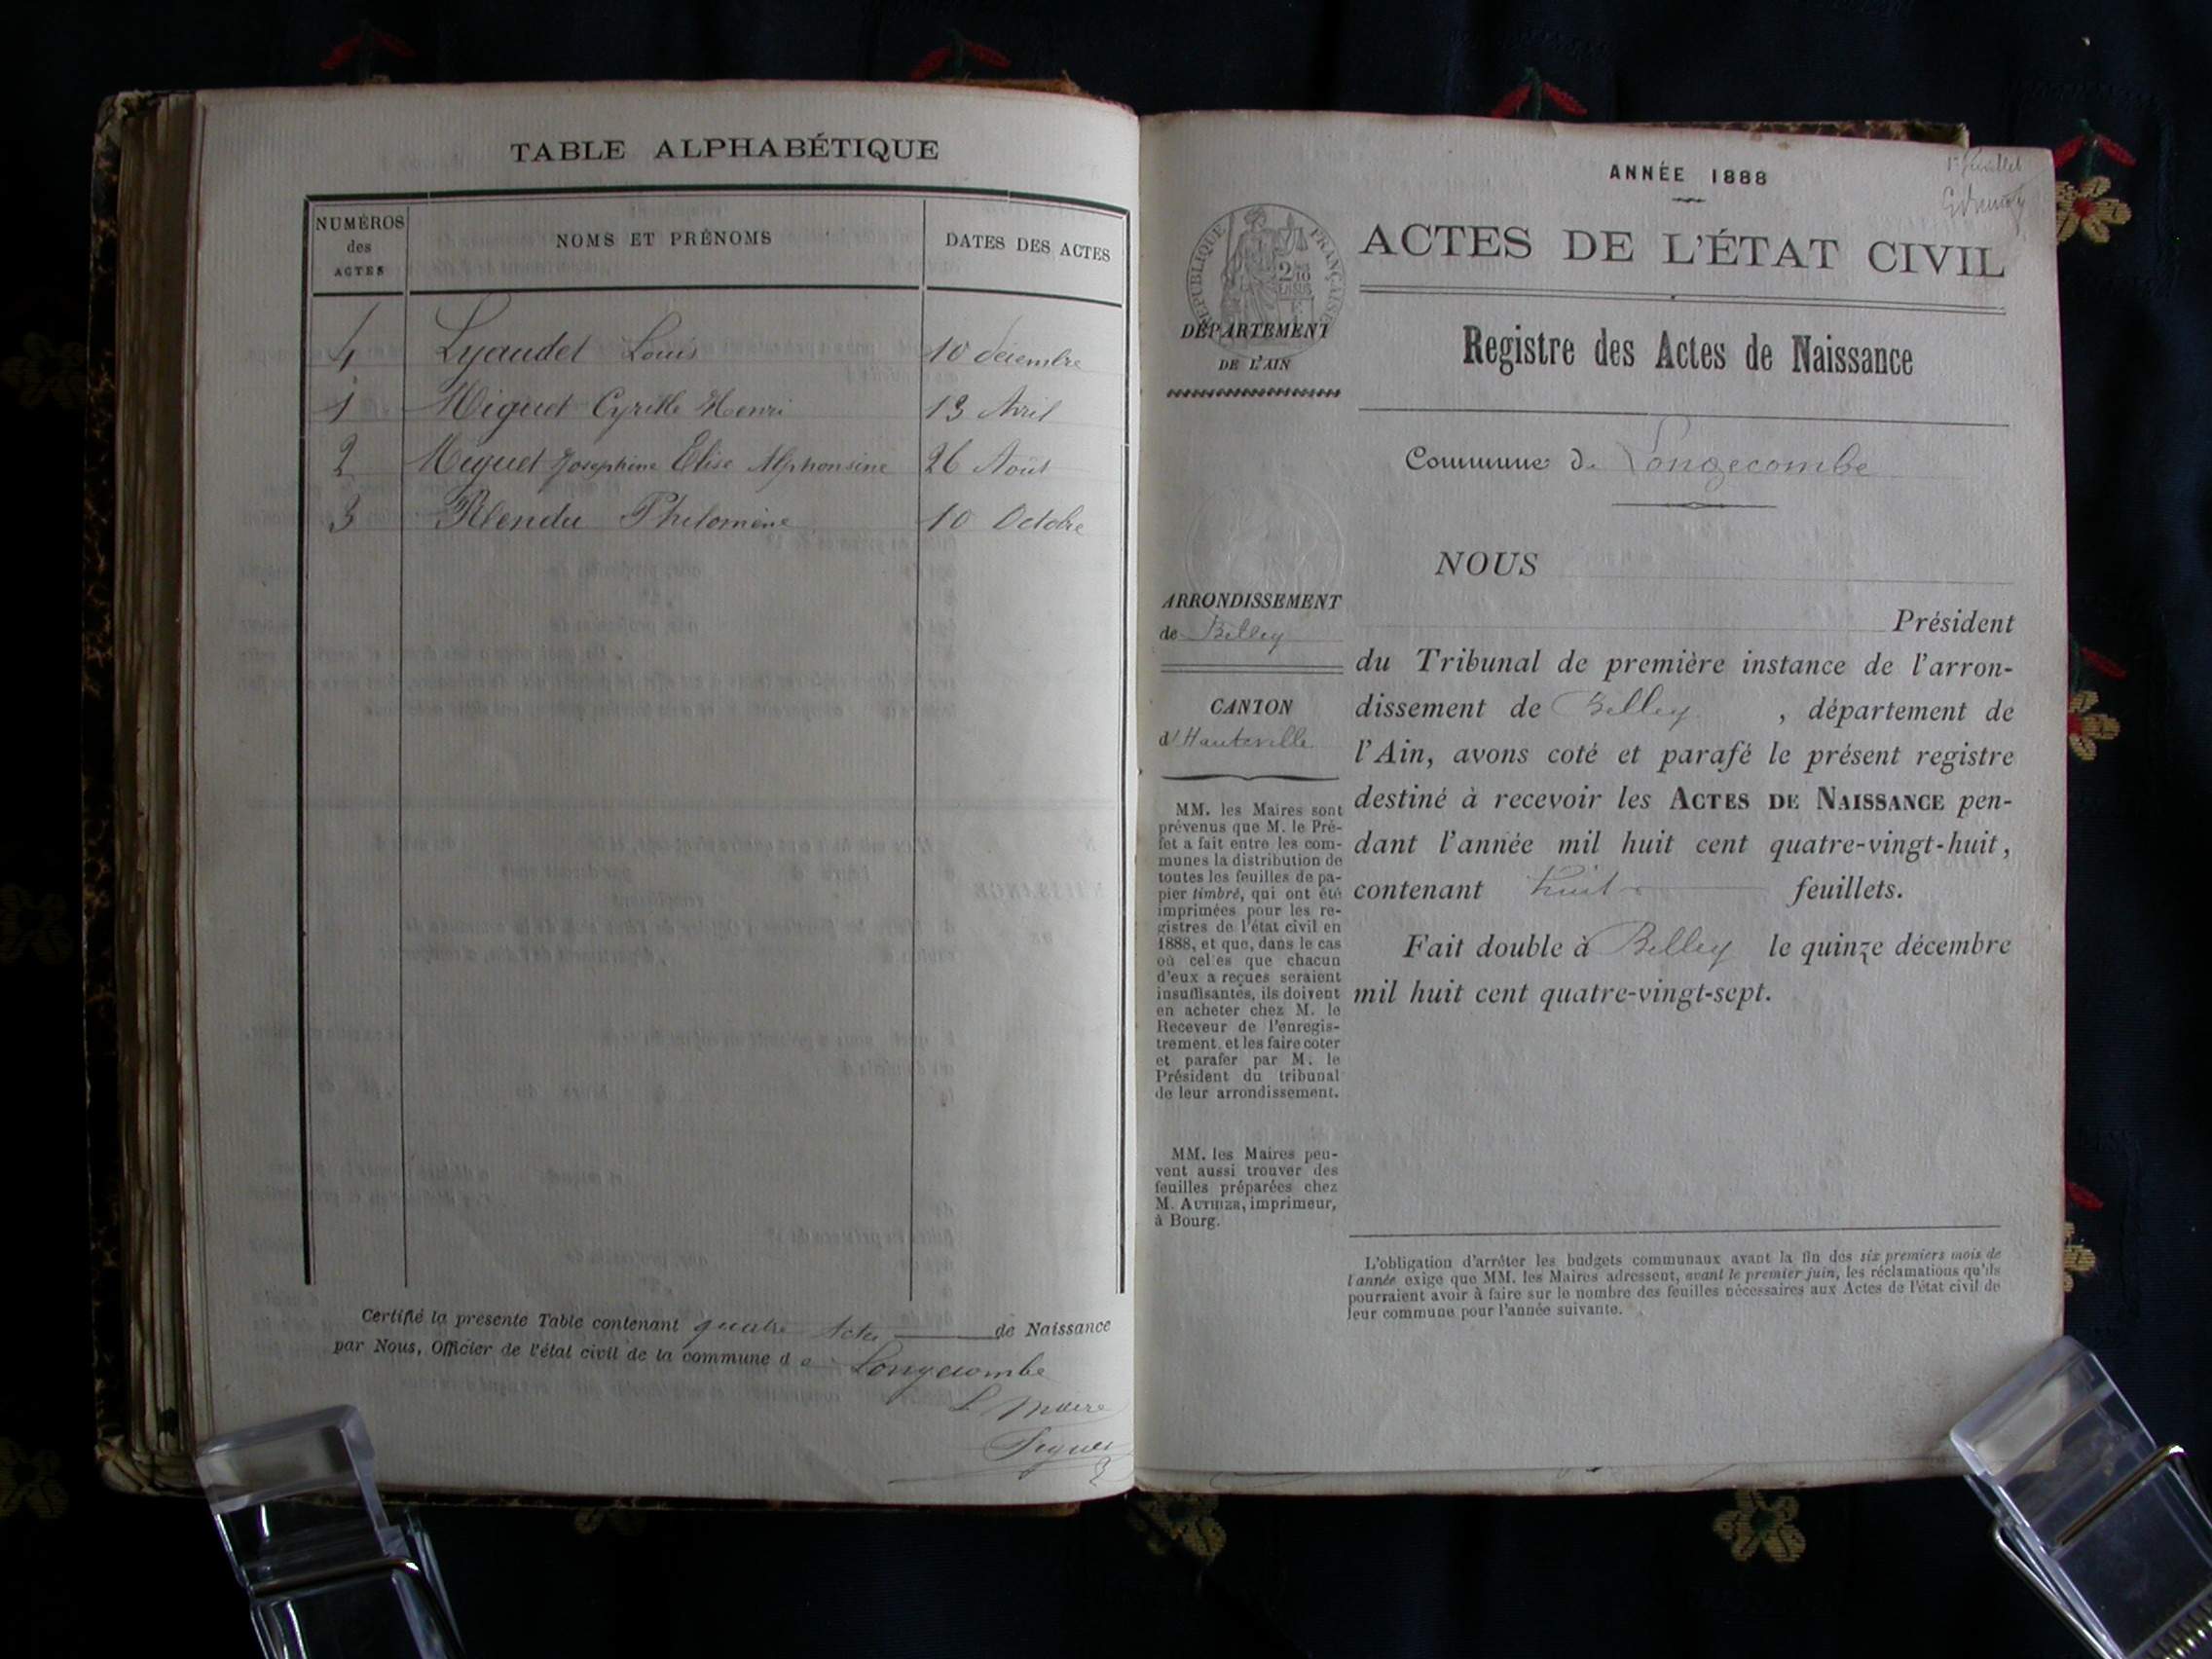 TABLE ALPHABÉTIQUE
NUMÉROS
des
ACTES
NOMS ET PRÉNOMS
DATES DES ACTES
4 Lyaudet Louis 10 décembre
1 Miguet Cyrille Henri 13 Avril
2 Miguet Joséphine Elise Alphonsine 26 Août
3 Rendu Philomène 10 Octobre
Certifié la présente Table contenant quatre Actes de Naissance
par Nous, Officier de l'état civil de la commune de Longecombe
Le Maire
ANNÉE 1888
1er feuillet
ACTES DE L'ÉTAT CIVIL
RÉPUBLIQUE FRANÇAISE
DÉPARTEMENT
DE L'AIN
Registre des Actes de Naissance
Commune de Longecombe
ARRONDISSEMENT
de Belley
CANTON
d'Hauteville
MM. les Maires sont
prévenus que M. le Pré-
fet a fait entre les com-
munes la distribution de
toutes les feuilles de pa-
pier timbré, qui ont été
imprimées pour les re-
gistres de l'état civil en
1888, et que, dans le cas
où celles que chacun
d'eux a reçues seraient
insuffisantes, ils doivent
en acheter chez M. le
Receveur de l'enregis-
trement, et les faire coter
et parafer par M. le
Président du tribunal
de leur arrondissement.
MM. les Maires peu-
vent aussi trouver des
feuilles préparées chez
M. Authier, imprimeur,
à Bourg.
NOUS
Président
du Tribunal de première instance de l'arron-
dissement de Belley, département de
l'Ain, avons coté et parafé le présent registre
destiné à recevoir les ACTES DE NAISSANCE pen-
dant l'année mil huit cent quatre-vingt-huit,
contenant huit feuillets.
Fait double à Belley le quinze décembre
mil huit cent quatre-vingt-sept.
L'obligation d'arrêter les budgets communaux avant la fin des six premiers mois de
l'année exige que MM. les Maires adressent, avant le premier juin, les réclamations qu'ils
pourraient avoir à faire sur le nombre des feuilles nécessaires aux Actes de l'état civil de
leur commune pour l'année suivante.